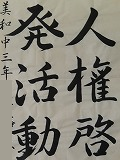 人権啓
発活動
美和中三年